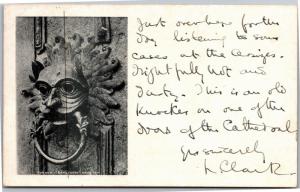 Just over here for the
day listening to some
cases at the Assizes.
Frightfully hot and
dusty. This is an old
Knocker on one of the
doors of the Cathedral
Yrs sincerely
L Clark